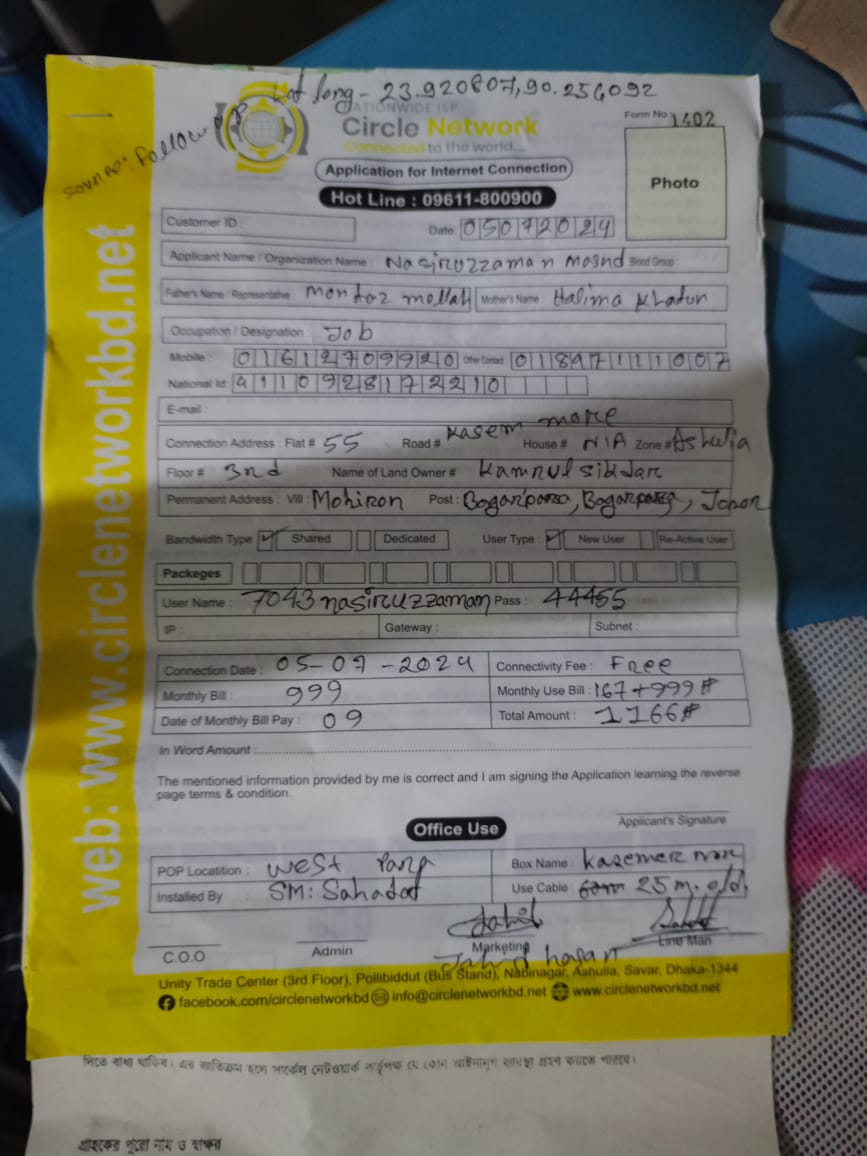 Lat long - 23.920807,90.254092
Source: Follow up
NATIONWIDE ISP
Circle Network
Connected to the world...
Form No 1402
Application for Internet Connection
Photo
Hot Line : 09611-800900
Customer ID :
Date: 05072024
Applicant Name / Organization Name : Nasiruzzaman Masud Blood Group :
Father's Name / Representative : Montaz mollah Mother's Name : Halima Khatun
Occupation / Designation : Job
Mobile : 01612709920 Other Contact 01897111007
National Id: 4110928172210
E-mail :
Connection Address : Flat # 55 Road # Kasem more House # N/A Zone # Ashulia
Floor # 3rd Name of Land Owner # Kamrul sikdar
Permanent Address : Vill : Mohiron Post :
Bandwidth Type Shared Dedicated User Type : New User Re-Active User
Packeges
User Name : 7043nasiruzzaman Pass : 44455
IP : Gateway : Subnet :
Connection Date : 05-07-2024 Connectivity Fee : Free
Monthly Bill : 999 Monthly Use Bill : 167+999
Date of Monthly Bill Pay : 09 Total Amount : 1166
In Word Amount :
The mentioned information provided by me is correct and I am signing the Application learning the reverse
page terms & condition.
Applicant's Signature
Office Use
POP Locatition : West Box Name : Kasemer more
Installed By : SM: Sahadat Use Cable : 25 m. old.
C.O.O Admin Marketing Line Man
Jahid hasan
Unity Trade Center (3rd Floor), Pollibiddut (Bus Stand), Nabinagar, Ashulia, Savar, Dhaka-1344
facebook.com/circlenetworkbd info@circlenetworkbd.net www.circlenetworkbd.net
web: www.circlenetworkbd.net
দিতে বাধ্য থাকিব। এর ব্যতিক্রম হলে সার্কেল নেটওয়ার্ক কর্তৃপক্ষ যে কোন আইনানুগ ব্যবস্থা গ্রহণ করতে পারবে।
গ্রাহকের পুরো নাম ও স্বাক্ষর